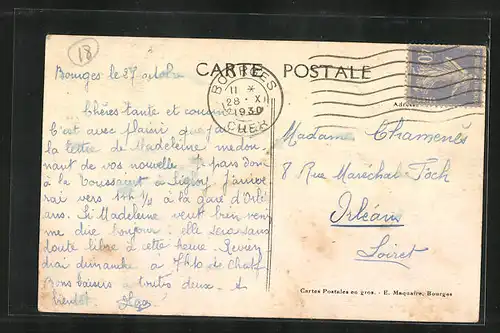 18
Bourges le 27 octobre
CARTE POSTALE
BOURGES
11 *
28 · X
1930
CHER
Adresse
Chères tante et cousine
C'est avec plaisir que j'ai
la lettre de Madeleine me don
nant de vos nouvelles. Je pars donc
à la Toussaint à J'arrive
rai vers 11h ½ à la gare d'Orlé
ans. Si Madeleine veut bien venir
me dire bonjour : elle sera sans
doute libre à cette heure. Revien
drai dimanche à 7h10 de
Bons baisers à toutes deux. et
bientôt
Madame Chamenés
8 Rue Maréchal Foch
Orléans
Loiret
Cartes Postales en gros. - E. Maquaire, Bourges